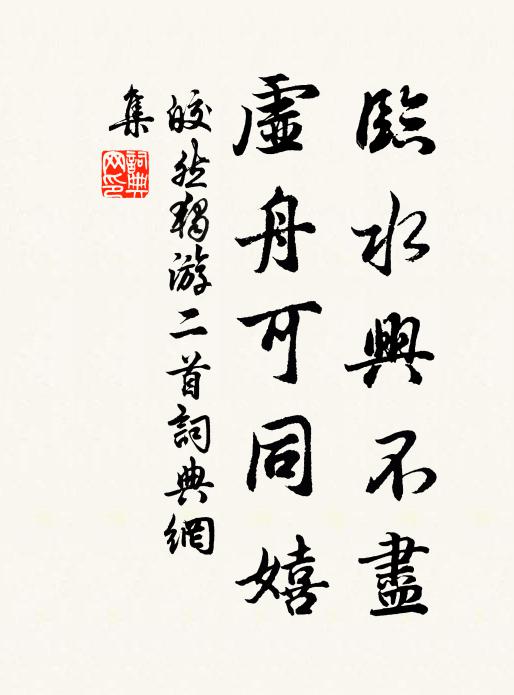 臨水興不盡
虛舟可同嬉
皎然獨游二首詞典網
集
詞典网印